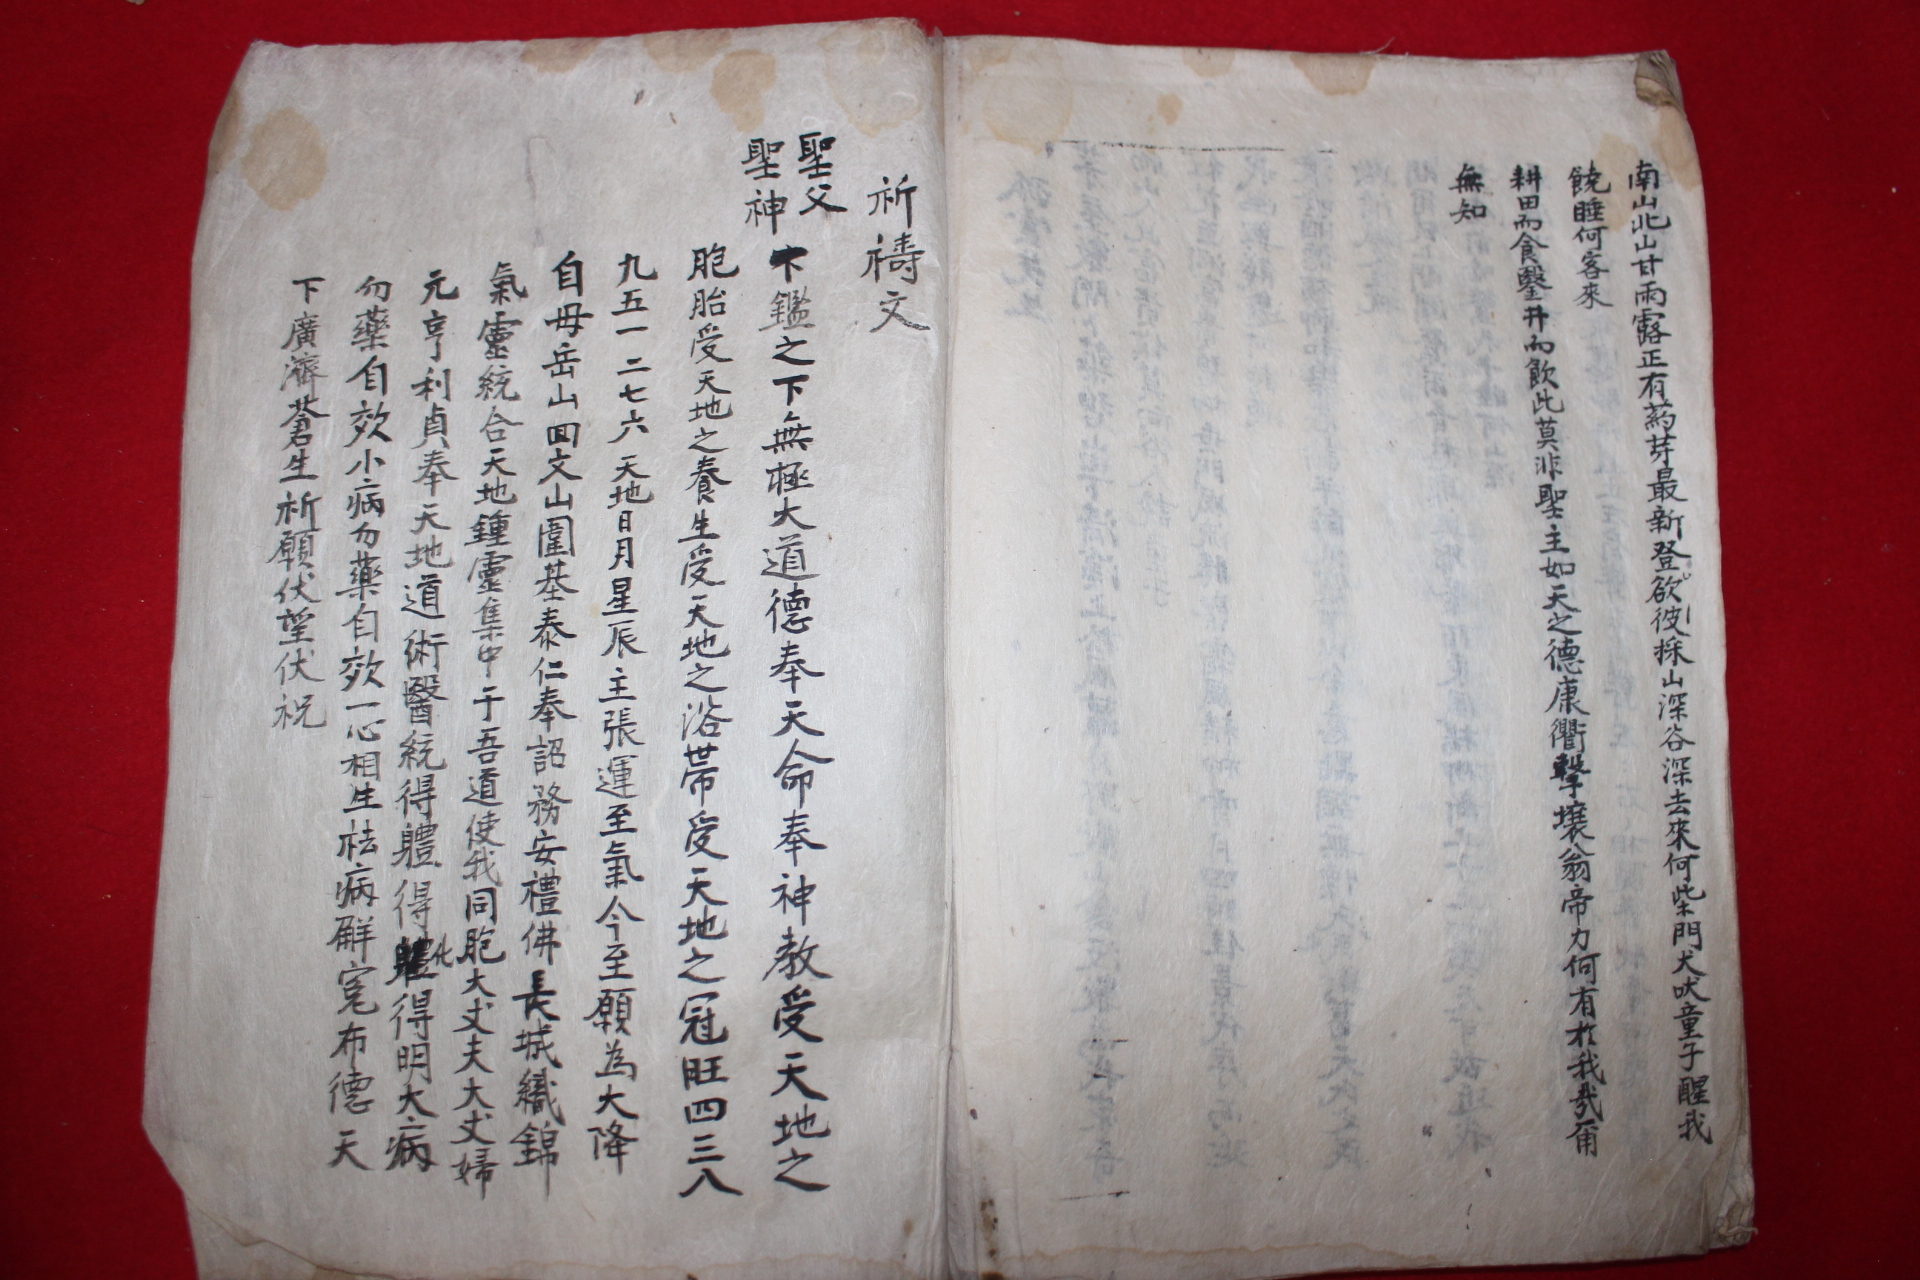 南山北山甘雨露正有葯芽最新登欲彼採山深谷深去來何柴門犬吠童子醒我
饒睡何客來
耕田而食鑿井而飮此莫非聖主如天之德康衢擊壤翁帝力何有於我哉甫
無知
祈禱文
聖父
聖神
下鑑之下無極大道德奉天命奉神敎受天地之
胞胎受天地之養生受天地之浴帶受天地之冠旺四三八
九五一二七六天地日月星辰主張運至氣今至願為大降
自母岳山回文山圍基泰仁奉詔務安禮佛長城織錦
氣靈統合天地鍾靈集中于吾道使我同胞大丈夫大丈婦
元亨利貞奉天地道術醫統得體得化得明大病
勿藥自效小病勿藥自效一心相生祛病解寃布德天
下廣濟蒼生祈願伏望伏祝